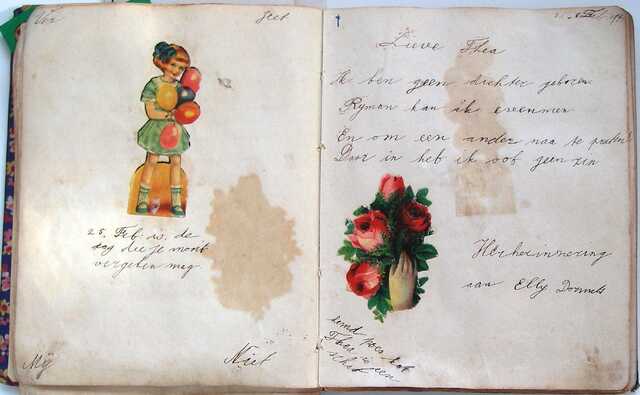 Ver geet
25. Feb. is de
dag die je nooit
vergeten mag
Mij Niet
Lieve Thea
Ik ben geen dichter geboren
Rijmen kan ik evenmin
En om een ander naa te praten
Daar in heb ik oof geen zin
Herherinnering
aan Elly
eend poes kat
Thea is een
schat